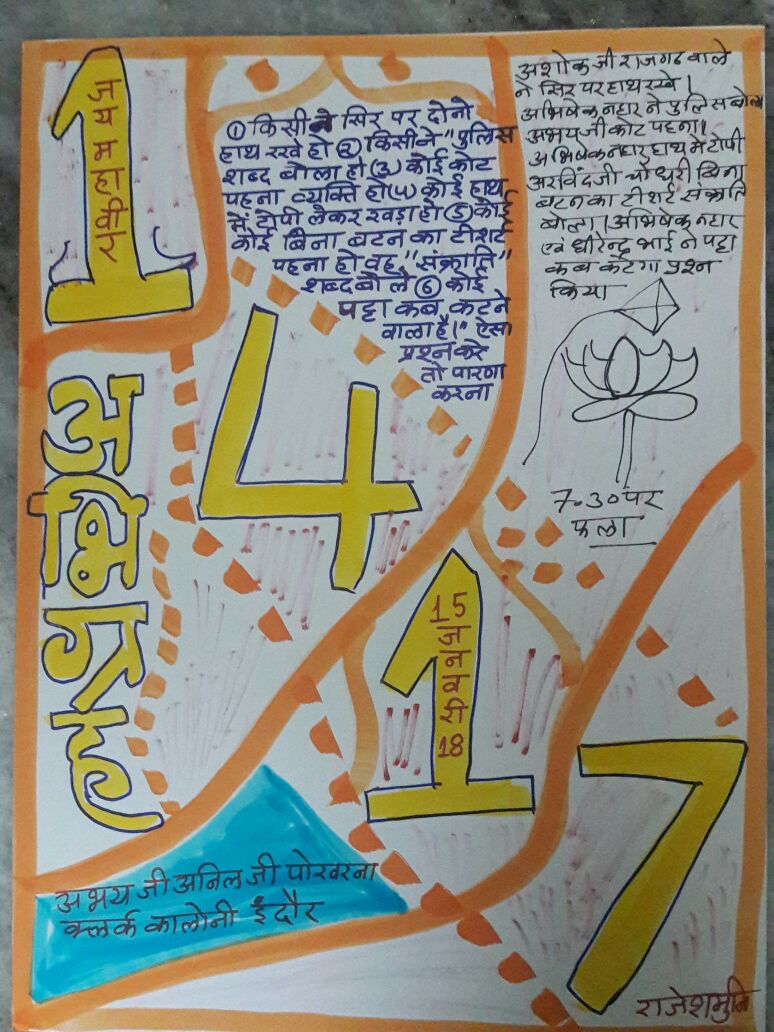 1
जय महावीर
① किसी ने सिर पर दोनो
हाथ रखे हो ② किसीने "पुलिस
शब्द बोला हो (3) कोई कोट
पहना व्यक्ति हो (4) कोई हाथ
में टोपी लेकर खड़ा हो ⑤ कोई
कोई बिना बटन का टीशर्ट
पहना हो वह "संक्राति"
शब्द बोले ⑥ कोई
पट्टा कब कटने
वाला है।" ऐसा
प्रश्न करे
तो पारणा
करना
अशोक जी राजगढ वाले
ने सिर पर हाथ रखे।
अभिषेक नहार ने पुलिस बोला
अभय जी कोट पहना।
अभिषेक नहार हाथ मे टोपी
अरविंद जी चौधरी बिना
बटन का टीशर्ट संक्राति
बोला। अभिषेक नहार
एवं धीरेन्द्र भाई ने पट्टा
कब कटेगा प्रश्न
किया
7-30 पर
फला
अभिग्रह
4
1
15
जनवरी
18
7
अभय जी अनिल जी पोरवरना
क्लर्क कालोनी इंदौर
राजेशमुनि